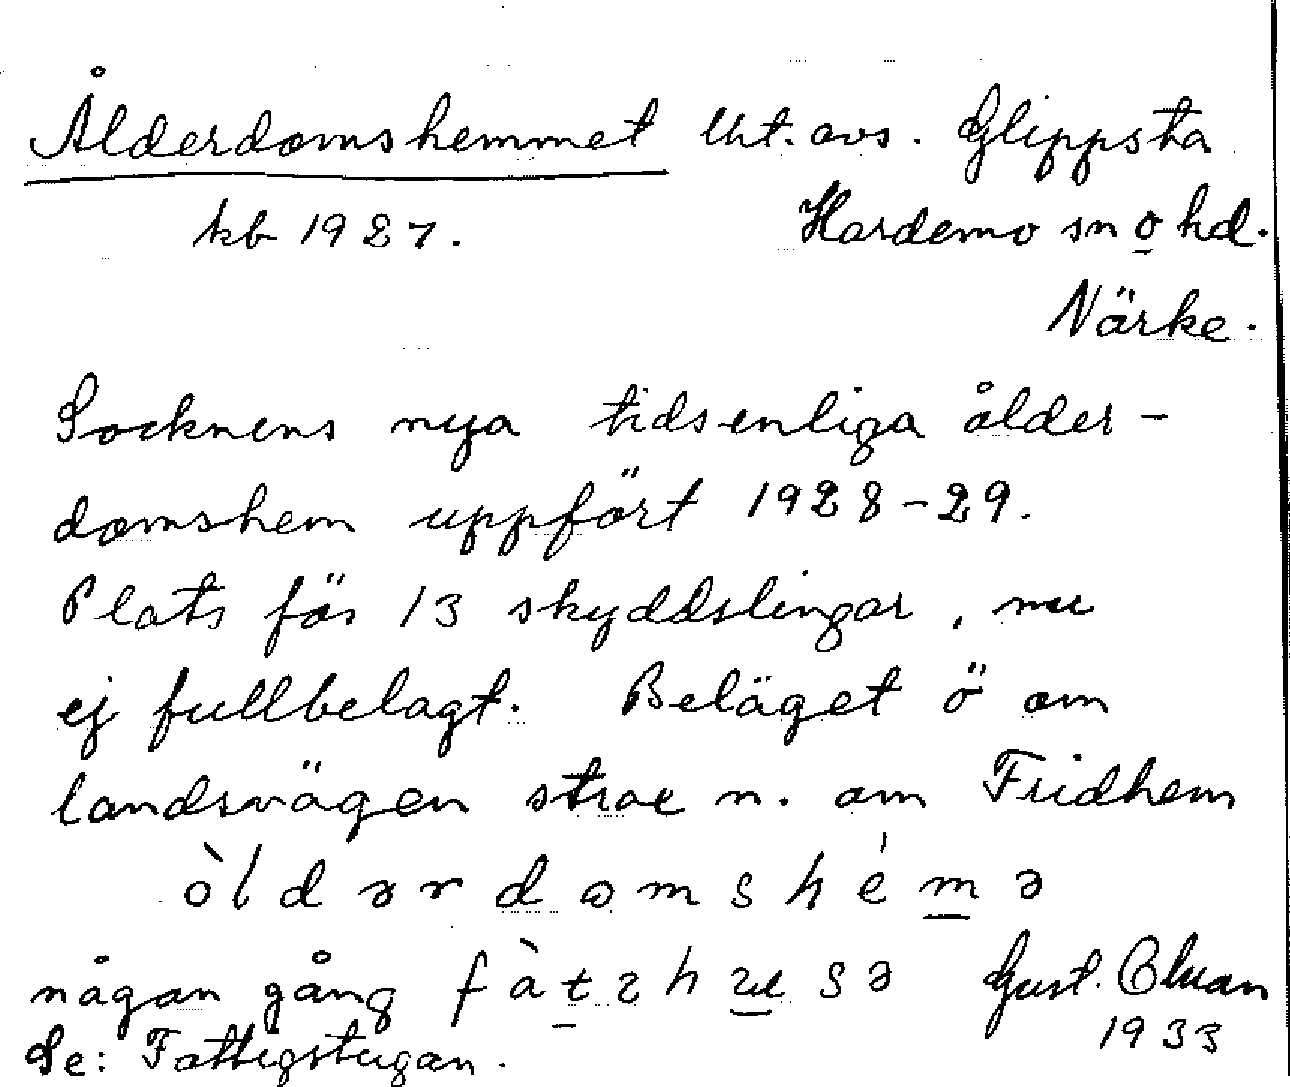 Ålderdomshemmet Uht. avs. Glippsta
kb 1927. Hardemo sn o hd.
Närke.
Socknens nya tidsenliga ålder-
domshem uppfört 1928-29.
Plats för 13 skyddslingar, nu
ej fullbelagt. Beläget ö om
landsvägen strax n. om Fridhem
òldərdomshémə
någon gång fàtshusə Gust.
1933
Se: Fattigstugan.